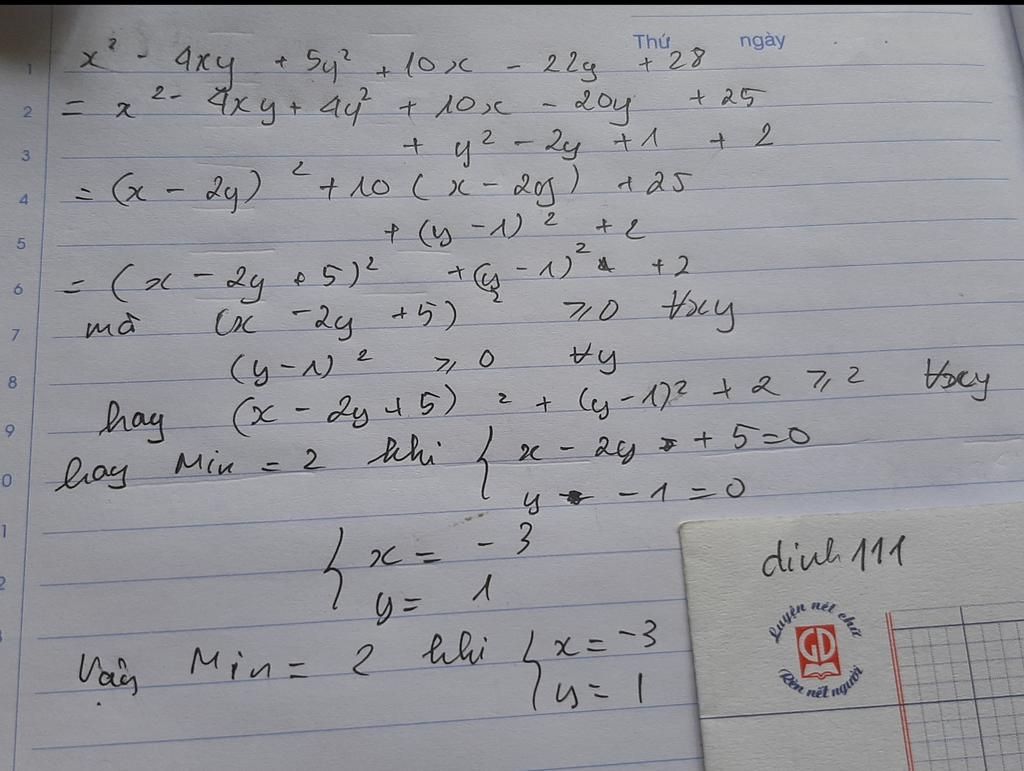 Thứ ngày
1 x² - 4xy + 5y² + 10x - 22y + 28
2 = x² - 4xy + 4y² + 10x - 20y + 25
3 + y² - 2y + 1 + 2
4 = (x - 2y)² + 10 (x - 2y) + 25
5 + (y - 1)² + 2
6 = (x - 2y + 5)² + (y - 1)² + 2
7 mà (x - 2y + 5)² ≥ 0 ∀xy
8 (y - 1)² ≥ 0 ∀y
9 hay (x - 2y + 5)² + (y - 1)² + 2 ≥ 2 ∀xy
0 hay Min = 2 khi { x - 2y + 5 = 0
y - 1 = 0
1 { x = - 3
2 y = 1
Vậy Min = 2 khi { x = -3
y = 1
dinh 111
Luyện nét chữ
GD
Rèn nết người